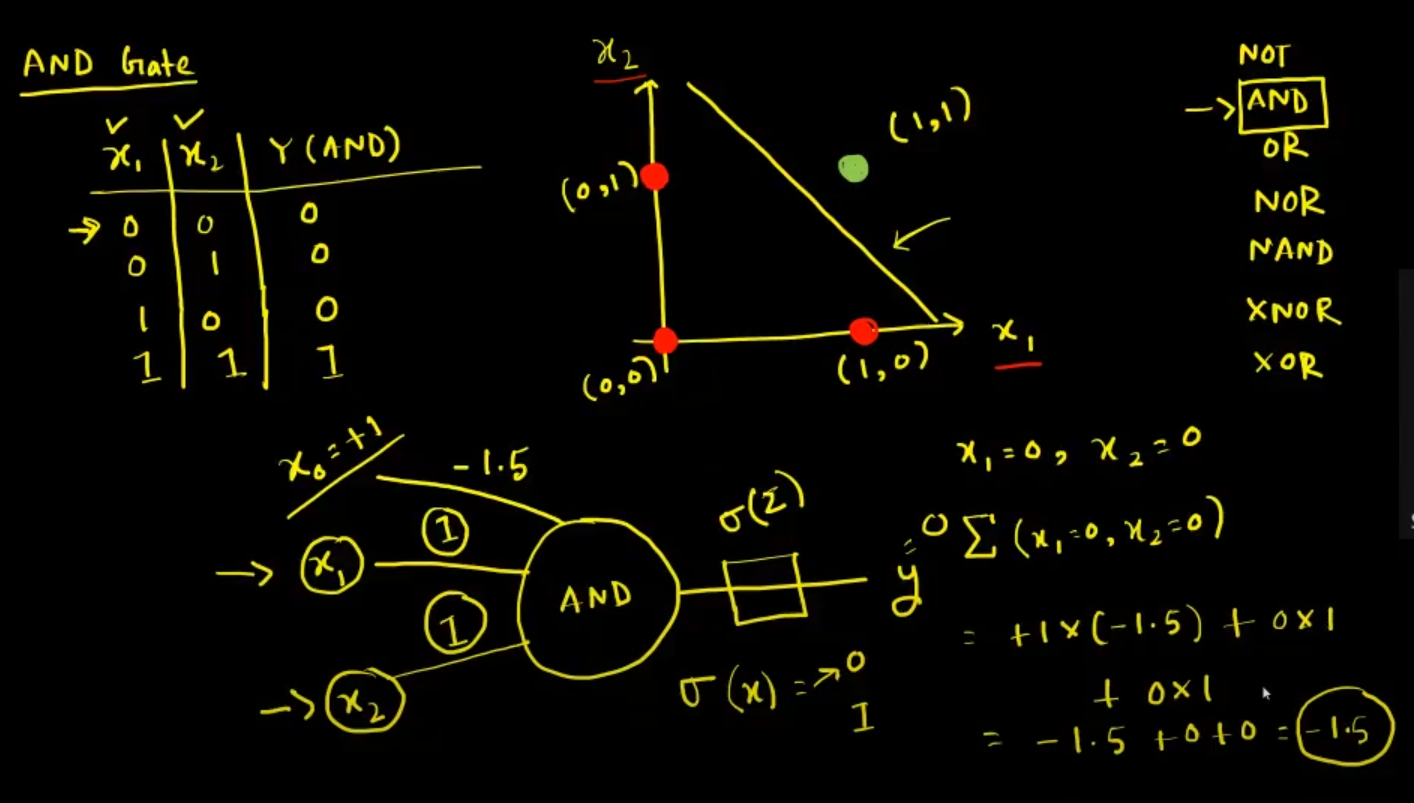 AND Gate
x₁ x₂ Y (AND)
0 0 0
0 1 0
1 0 0
1 1 1
x₂
(0,1)
(1,1)
(0,0)
(1,0)
x₁
NOT
-> AND
OR
NOR
NAND
XNOR
XOR
x₀=+1
-1.5
x₁
1
x₂
1
AND
σ(Σ)
y=0
σ(x) => 0
1
x₁=0, x₂=0
Σ(x₁=0, x₂=0)
= +1×(-1.5) + 0×1
+ 0×1
= -1.5 +0+0 = -1.5